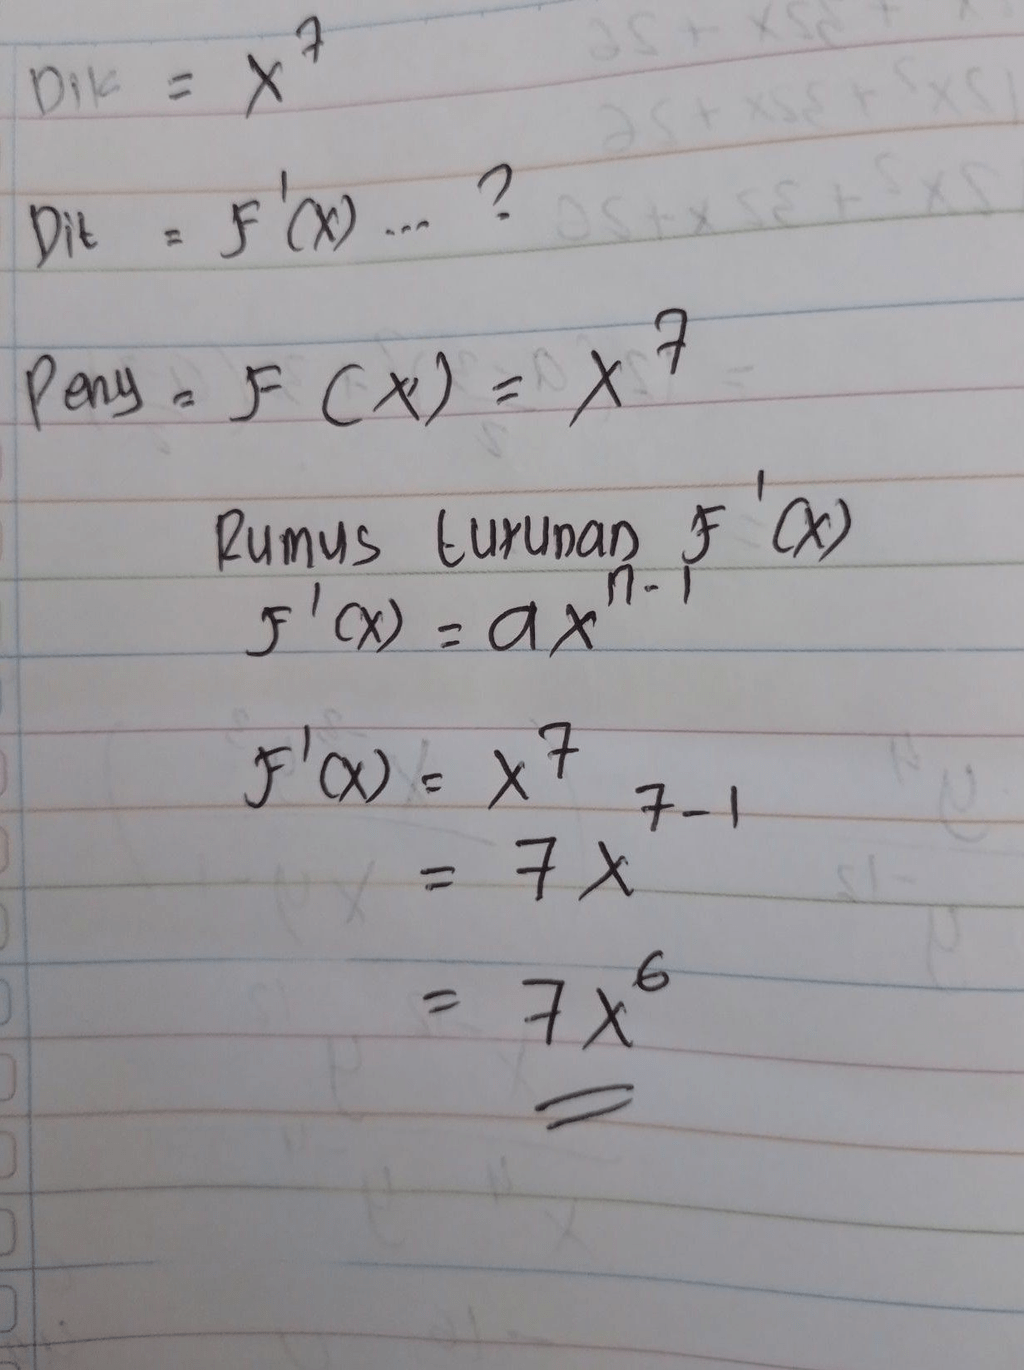 Dik = x⁷
Dit = F'(x) ... ?
Peny = F(x) = x⁷
Rumus turunan F'(x)
F'(x) = ax^(n-1)
F'(x) = x⁷
= 7x^(7-1)
= 7x⁶